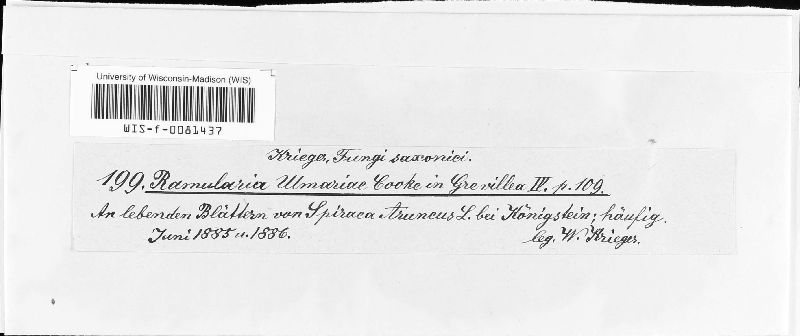 University of Wisconsin-Madison (WIS)
WIS-f-0081437
Krieger, Fungi saxonici.
199. Ramularia Ulmariae Cooke in Grevillea IV. p. 109.
An lebenden Blättern von Spiraea Aruncus L. bei Königstein; häufig.
Juni 1885 u. 1886.
leg. W. Krieger.